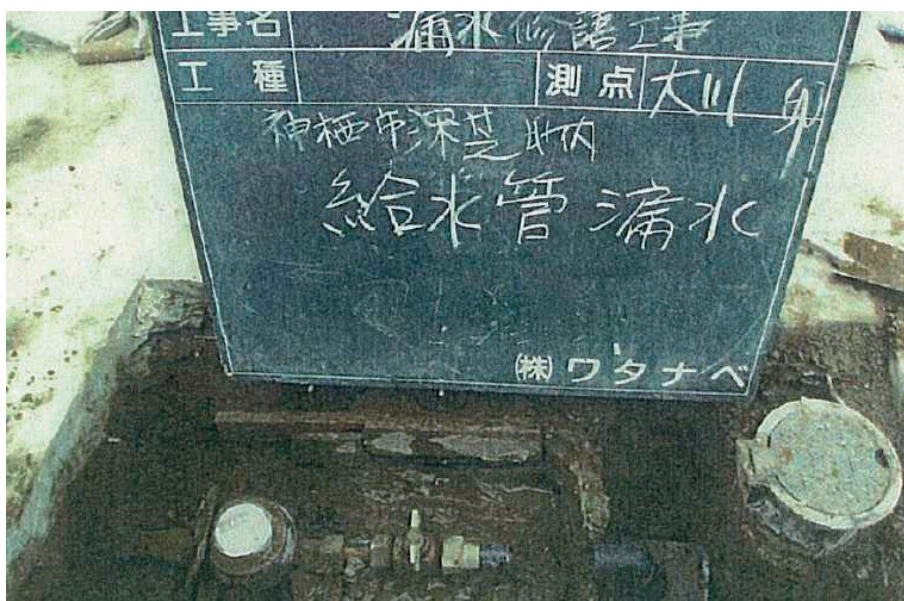 工事名 漏水修繕工事
工種 測点 大川 卯
神栖市深芝地内
給水管漏水
㈱ワタナベ